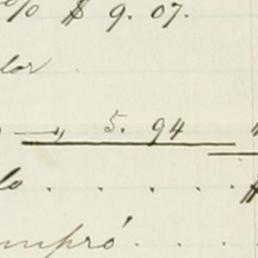 % $ 9. 07.
lor
" 5. 94
lo . . . . . $
mpró . . .